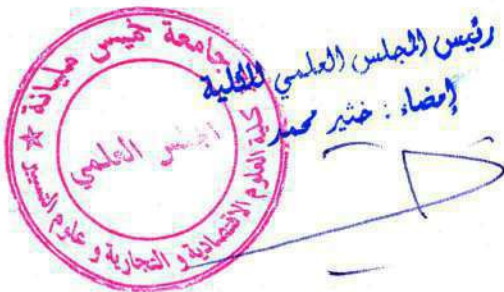 رئيس المجلس العلمي للكلية
إمضاء : خثير محمد
جامعة خميس مليانة
كلية العلوم الاقتصادية و التجارية و علوم التسيير
المجلس العلمي